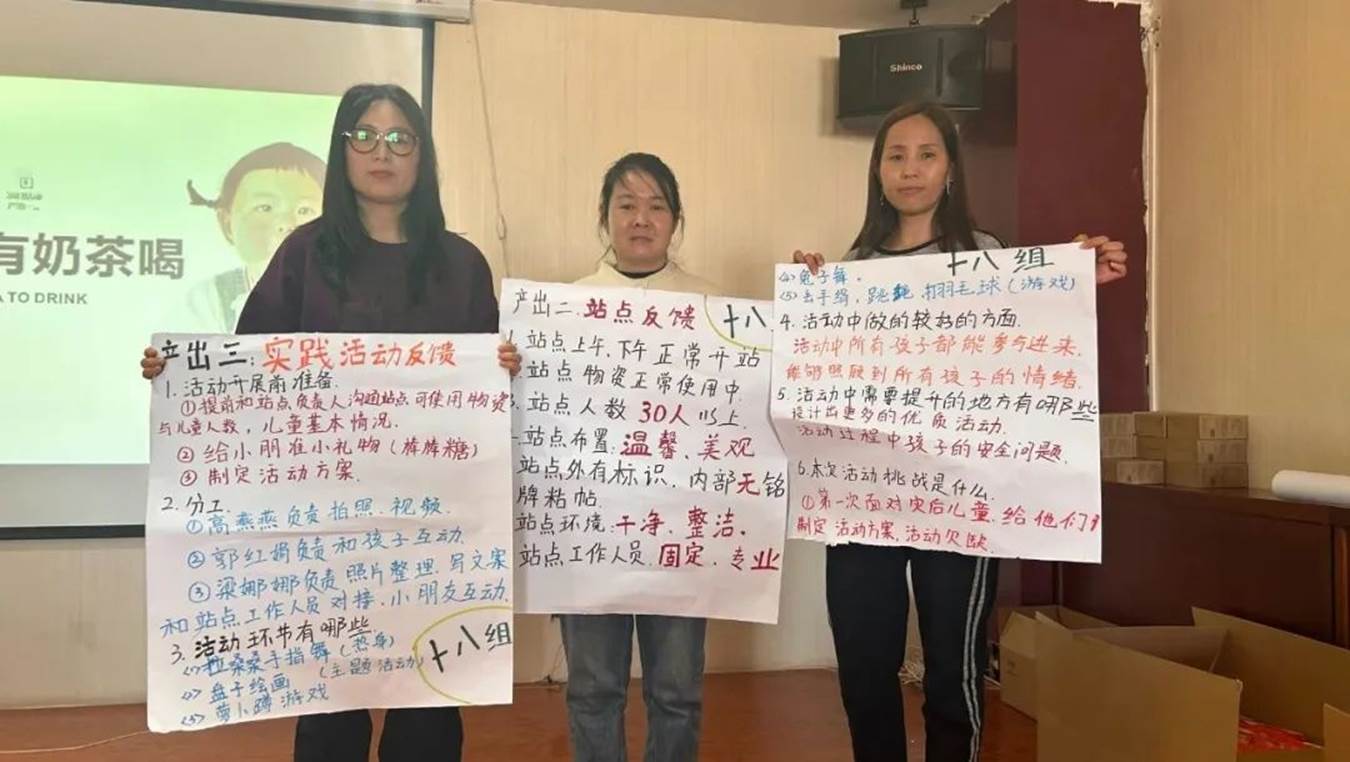 有奶茶喝
A TO DRINK
Shinco
产出三:实践活动反馈
1. 活动开展前准备.
①提前和站点负责人沟通站点可使用物资
与儿童人数,儿童基本情况.
② 给小朋准小礼物(棒棒糖)
③ 制定活动方案.
2. 分工.
①高燕燕负责拍照.视频.
②郭红娟负责和孩子互动.
③梁娜娜负责照片整理.写文案
和站点工作人员对接.小朋友互动.
3. 活动环节有哪些.
<1>拉桑桑手指舞(热身)
<2>盘子绘画 (主题活动)
<3>萝卜蹲游戏
十八组
产出二.站点反馈
十八
站点上午.下午正常开站
站点物资正常使用中.
3.站点人数30人以上.
站点布置:温馨、美观
站点外有标识.内部无铭
牌粘帖.
站点环境:干净、整洁.
站点工作人员.固定.专业
十八组
<4>兔子舞.
<5>丢手绢,跳绳,打羽毛球(游戏)
4. 活动中做的较好的方面.
活动中所有孩子都能参与进来.
能够照顾到所有孩子的情绪.
5. 活动中需要提升的地方有哪些
设计出更多的优质活动.
活动过程中孩子的安全问题.
6.本次活动挑战是什么.
①第一次面对灾后儿童.给他们
制定活动方案.活动欠缺.